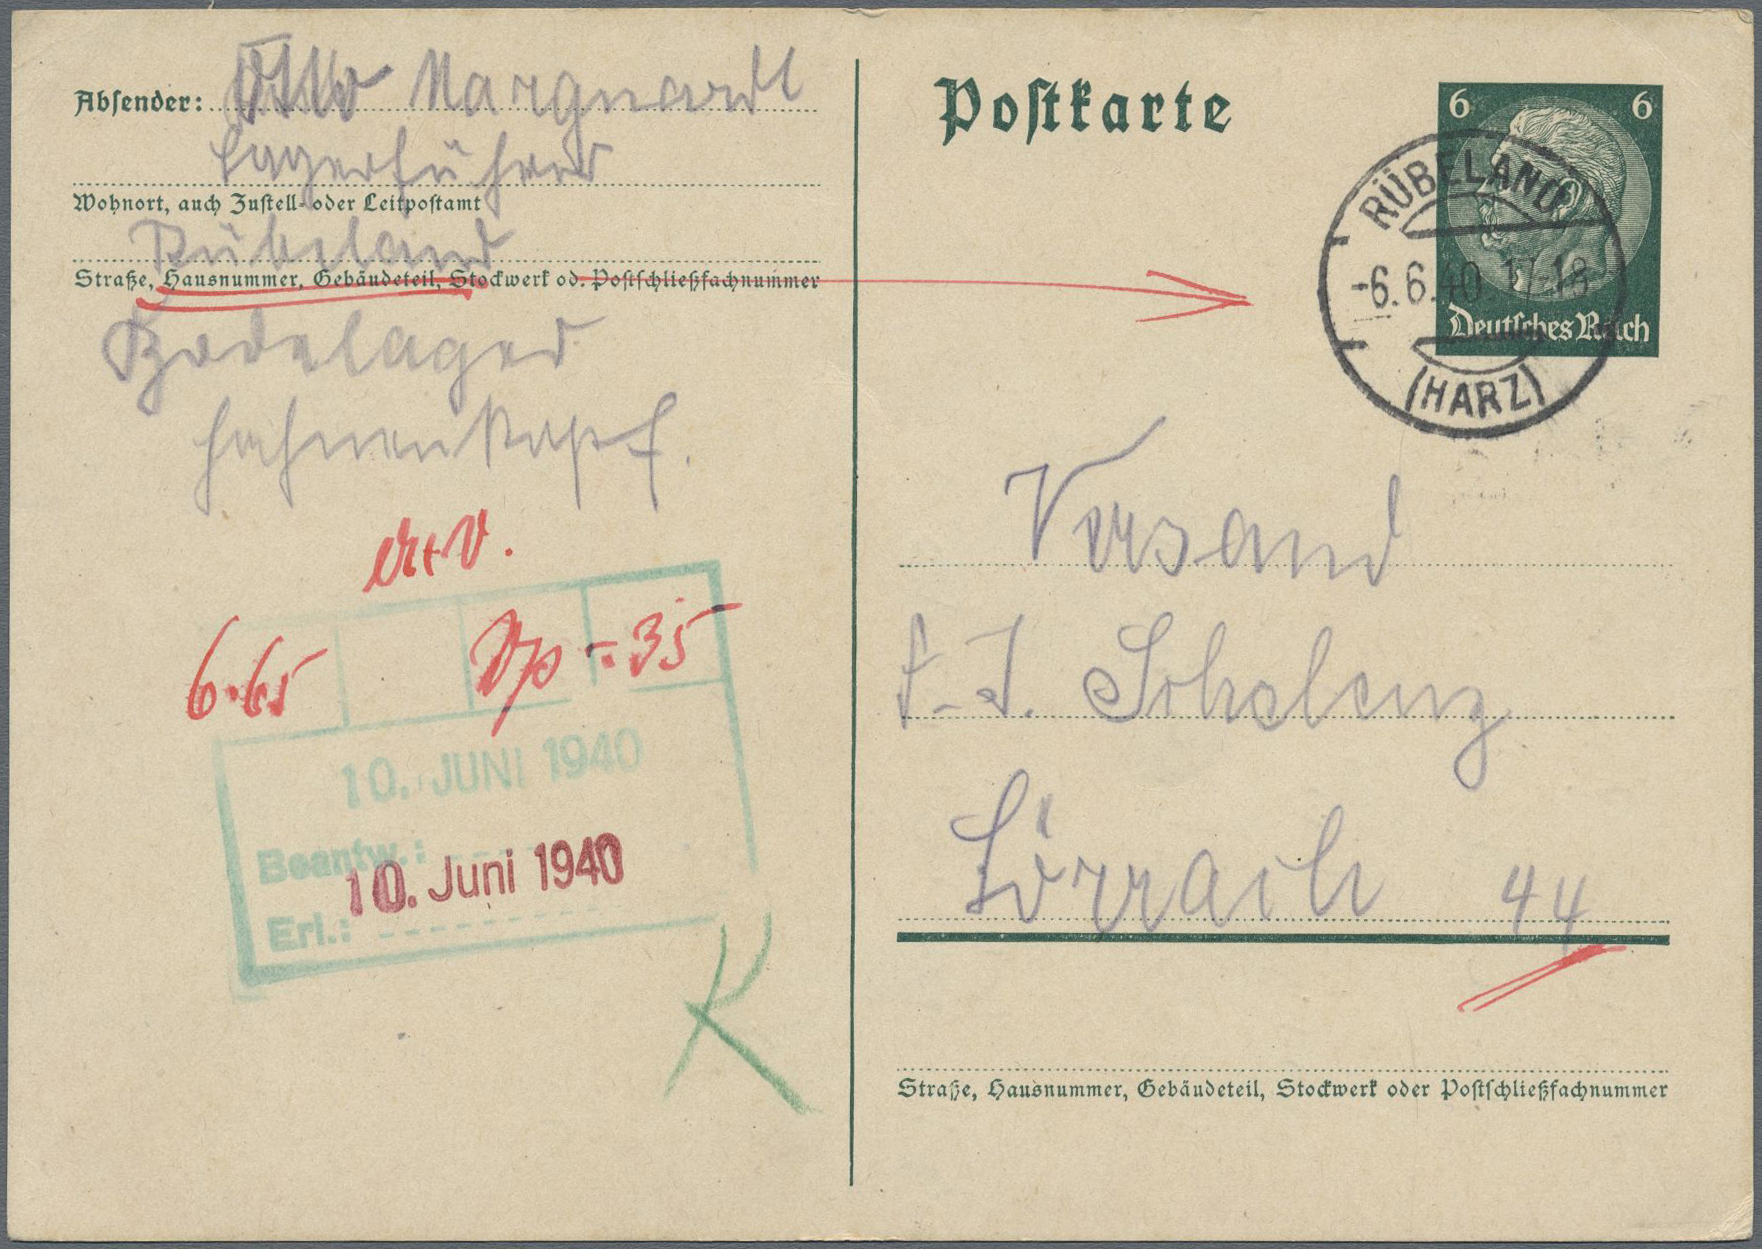 Absender: Otto Marquardt
Lagerführer
Wohnort, auch Zustell- oder Leitpostamt
Rübeland
Straße, Hausnummer, Gebäudeteil, Stockwerk od. Postschließfachnummer
Bodelager
Hahnenkopf.
6.65
-.35
10. JUNI 1940
Beantw.:
10. Juni 1940
Erl.:
Postkarte
6 6
Deutsches Reich
RÜBELAND
-6.6.40.17-18
(HARZ)
Versand
Scholenz
Lörrach 44
Straße, Hausnummer, Gebäudeteil, Stockwerk oder Postschließfachnummer